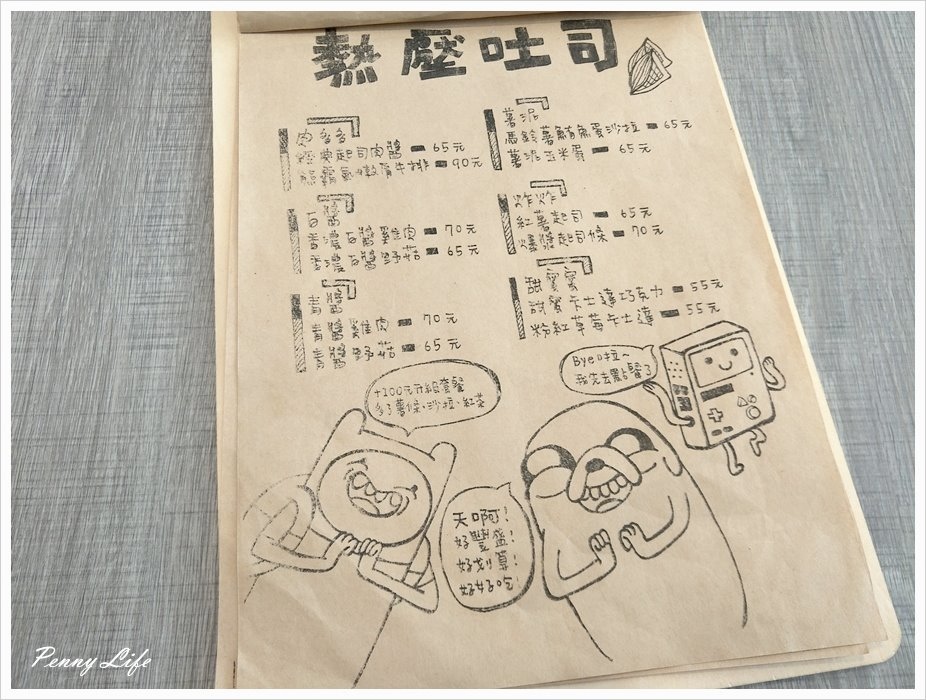 熱壓吐司
肉多多
起司肉醬 65元
嫩蛋牛排 90元
白醬
白醬雞肉 70元
白醬野菇 65元
青醬
青醬雞肉 70元
青醬野菇 65元
薯泥
馬鈴薯鮪魚蛋沙拉 65元
薯泥玉米蛋 65元
炸炸
紅薯起司 65元
爆漿起司條 70元
甜蜜蜜
甜蜜卡士達巧克力 55元
粉紅草莓卡士達 55元
+100元升級套餐
多了薯條、沙拉、紅茶
Bye啦~
我先去點餐了
天啊!
好豐盛!
好划算!
好好吃
Penny Life